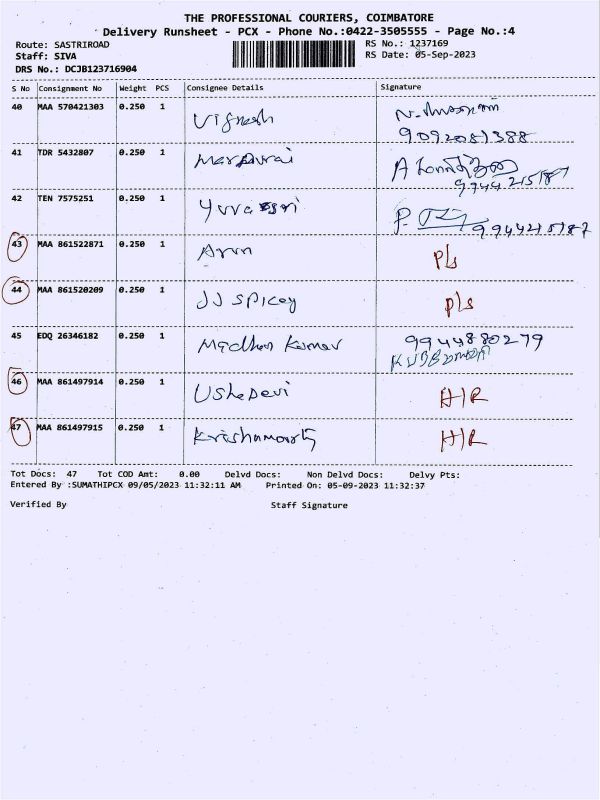 THE PROFESSIONAL COURIERS, COIMBATORE
Delivery Runsheet - PCX - Phone No.:0422-3505555 - Page No.:4
Route: SASTRIROAD RS No.: 1237169
Staff: SIVA RS Date: 05-Sep-2023
DRS No.: DCJB123716904
S No Consignment No Weight PCS Consignee Details Signature
40 MAA 570421303 0.250 1 Vignesh
9092081388
41 TDR 5432807 0.250 1
9944215187
42 TEN 7575251 0.250 1
9944215187
43 MAA 861522871 0.250 1 Arun P/s
44 MAA 861520209 0.250 1 JJ SPicey P/s
45 EDQ 26346182 0.250 1 Madhan Kumar 9944880279
46 MAA 861497914 0.250 1 UshaDevi H/R
47 MAA 861497915 0.250 1 H/R
Tot Docs: 47 Tot COD Amt: 0.00 Delvd Docs: Non Delvd Docs: Delvy Pts:
Entered By :SUMATHIPCX 09/05/2023 11:32:11 AM Printed On: 05-09-2023 11:32:37
Verified By Staff Signature